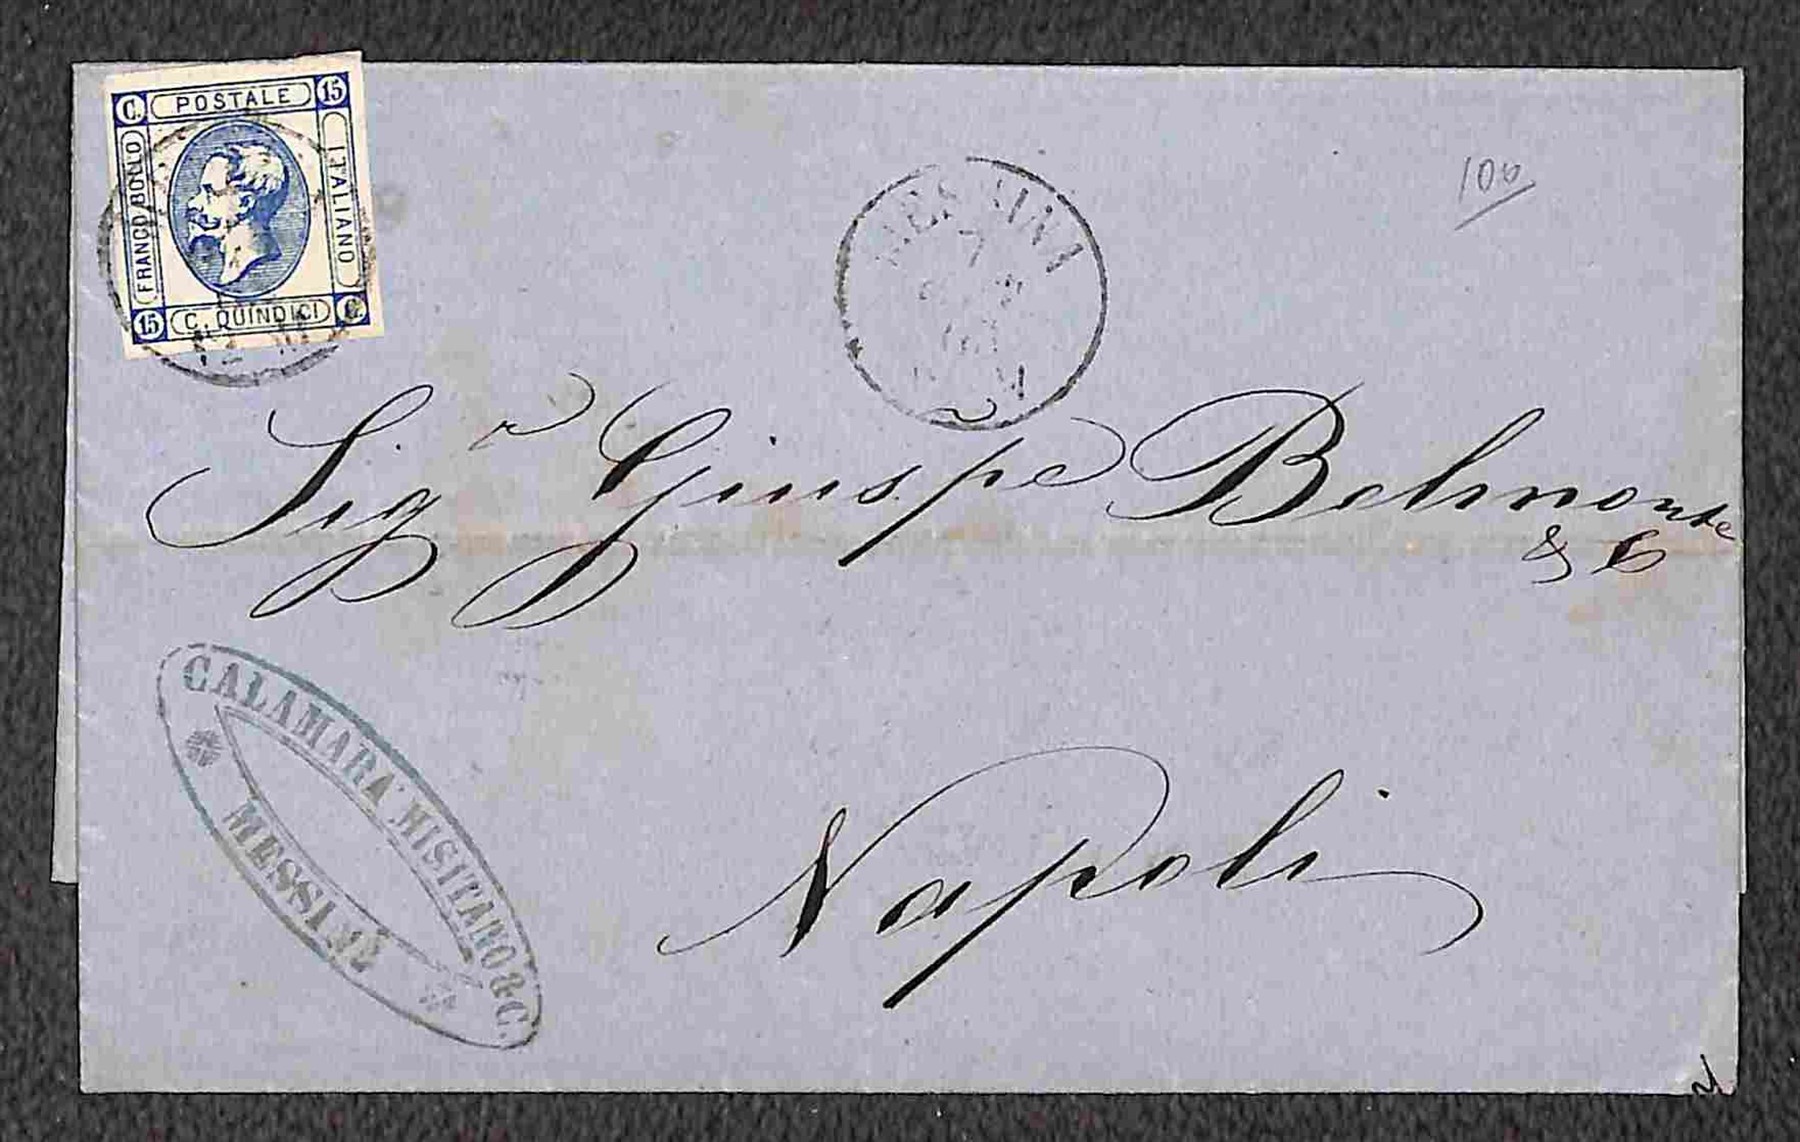 C. POSTALE 15
FRANCO BOLLO
ITALIANO
15 C. QUINDICI C.
12 M
MESSINA
7
63
12 M
100
Sigr Giuspe Belmonte
& C
Napoli
CALAMARA MISITANO & C.
MESSINA